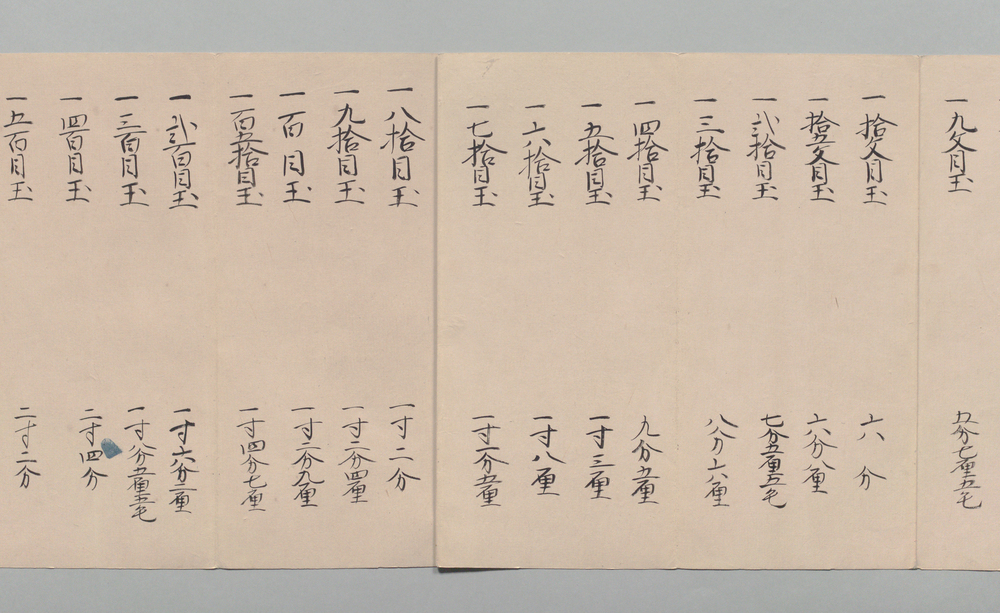 一九文目玉 五分七厘五毛
一拾文目玉 六分
一拾五文目玉 六分八厘
一弐拾目玉 七分五厘五毛
一三拾目玉 八分六厘
一四拾目玉 九分五厘
一五拾目玉 一寸三厘
一六拾目玉 一寸八厘
一七拾目玉 一寸一分五厘
一八拾目玉 一寸二分
一九拾目玉 一寸二分四厘
一百目玉 一寸二分九厘
一百五拾目玉 一寸四分七厘
一弐百目玉 一寸六分二厘
一三百目玉 一寸八分五厘五毛
一四百目玉 二寸四分
一五百目玉 二寸二分